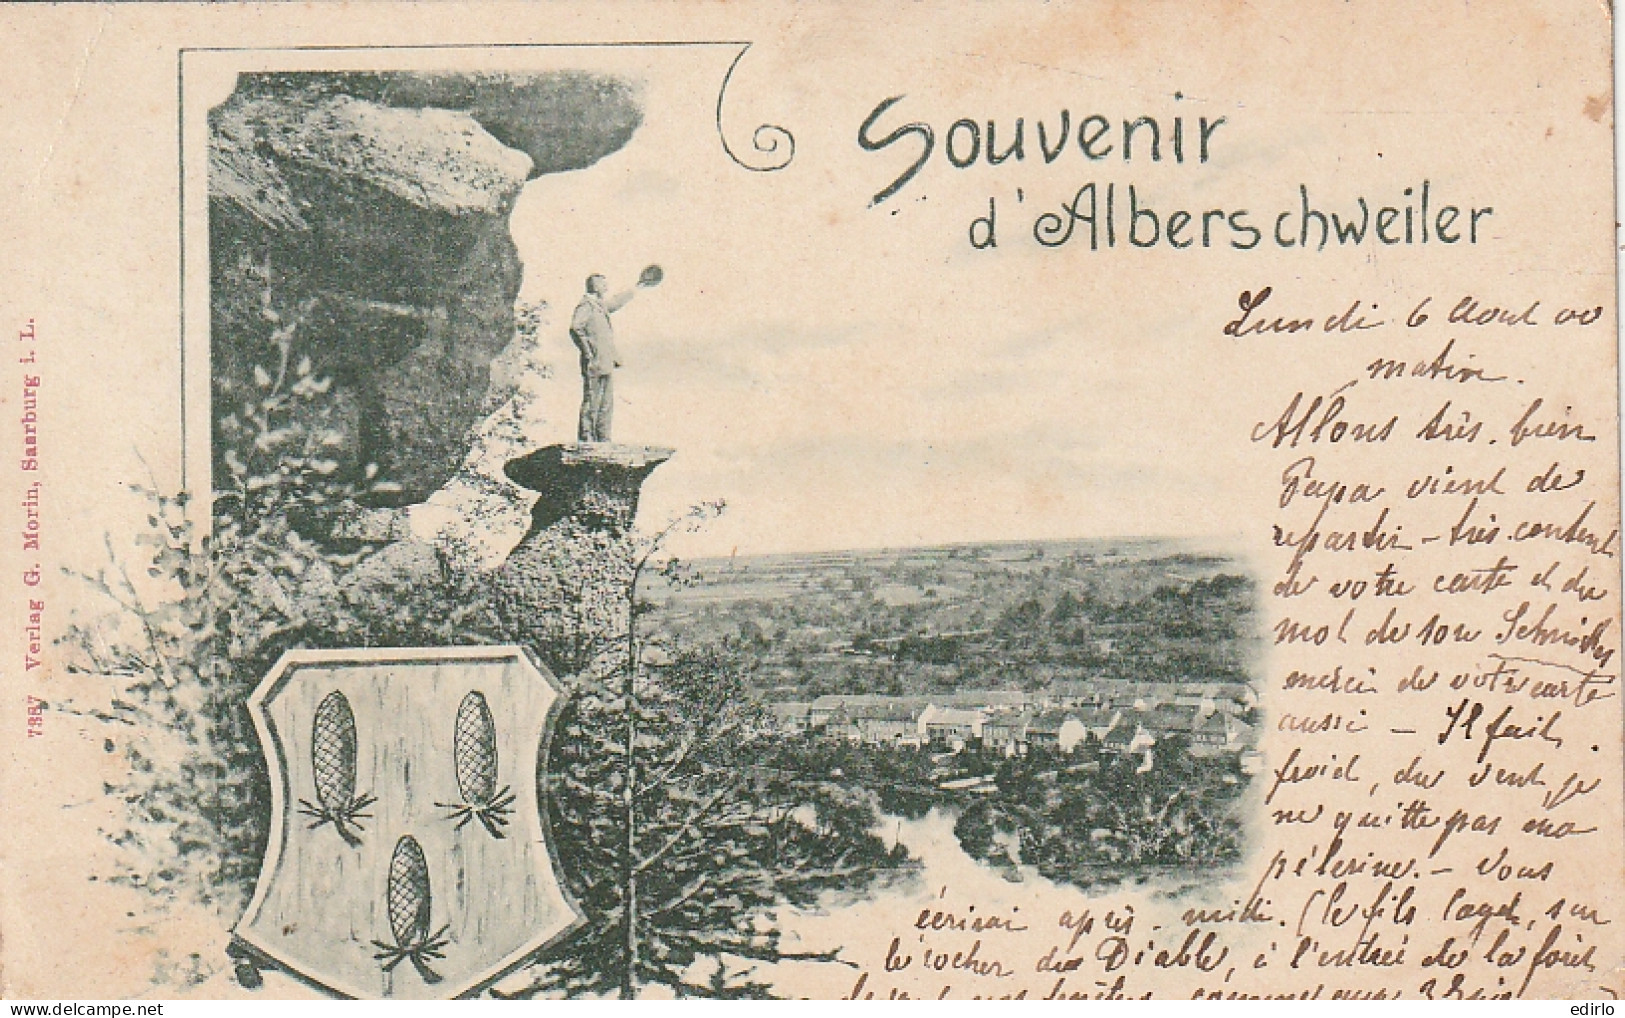 Souvenir
d'Alberschweiler
Lundi 6 Aout 00
matin.
Allons très bien
Papa vient de
repartir - très content
de votre carte et du
mot de son
merci de votre carte
aussi - Il fait
froid, du vent, je
ne quitte pas ma
pélerine. - Vous
écrirai après-midi. (le fils sur
le rocher du Diable, à l'entrée de la forêt
7387 Verlag G. Morin, Saarburg i. L.
delcampe.net
edirlo